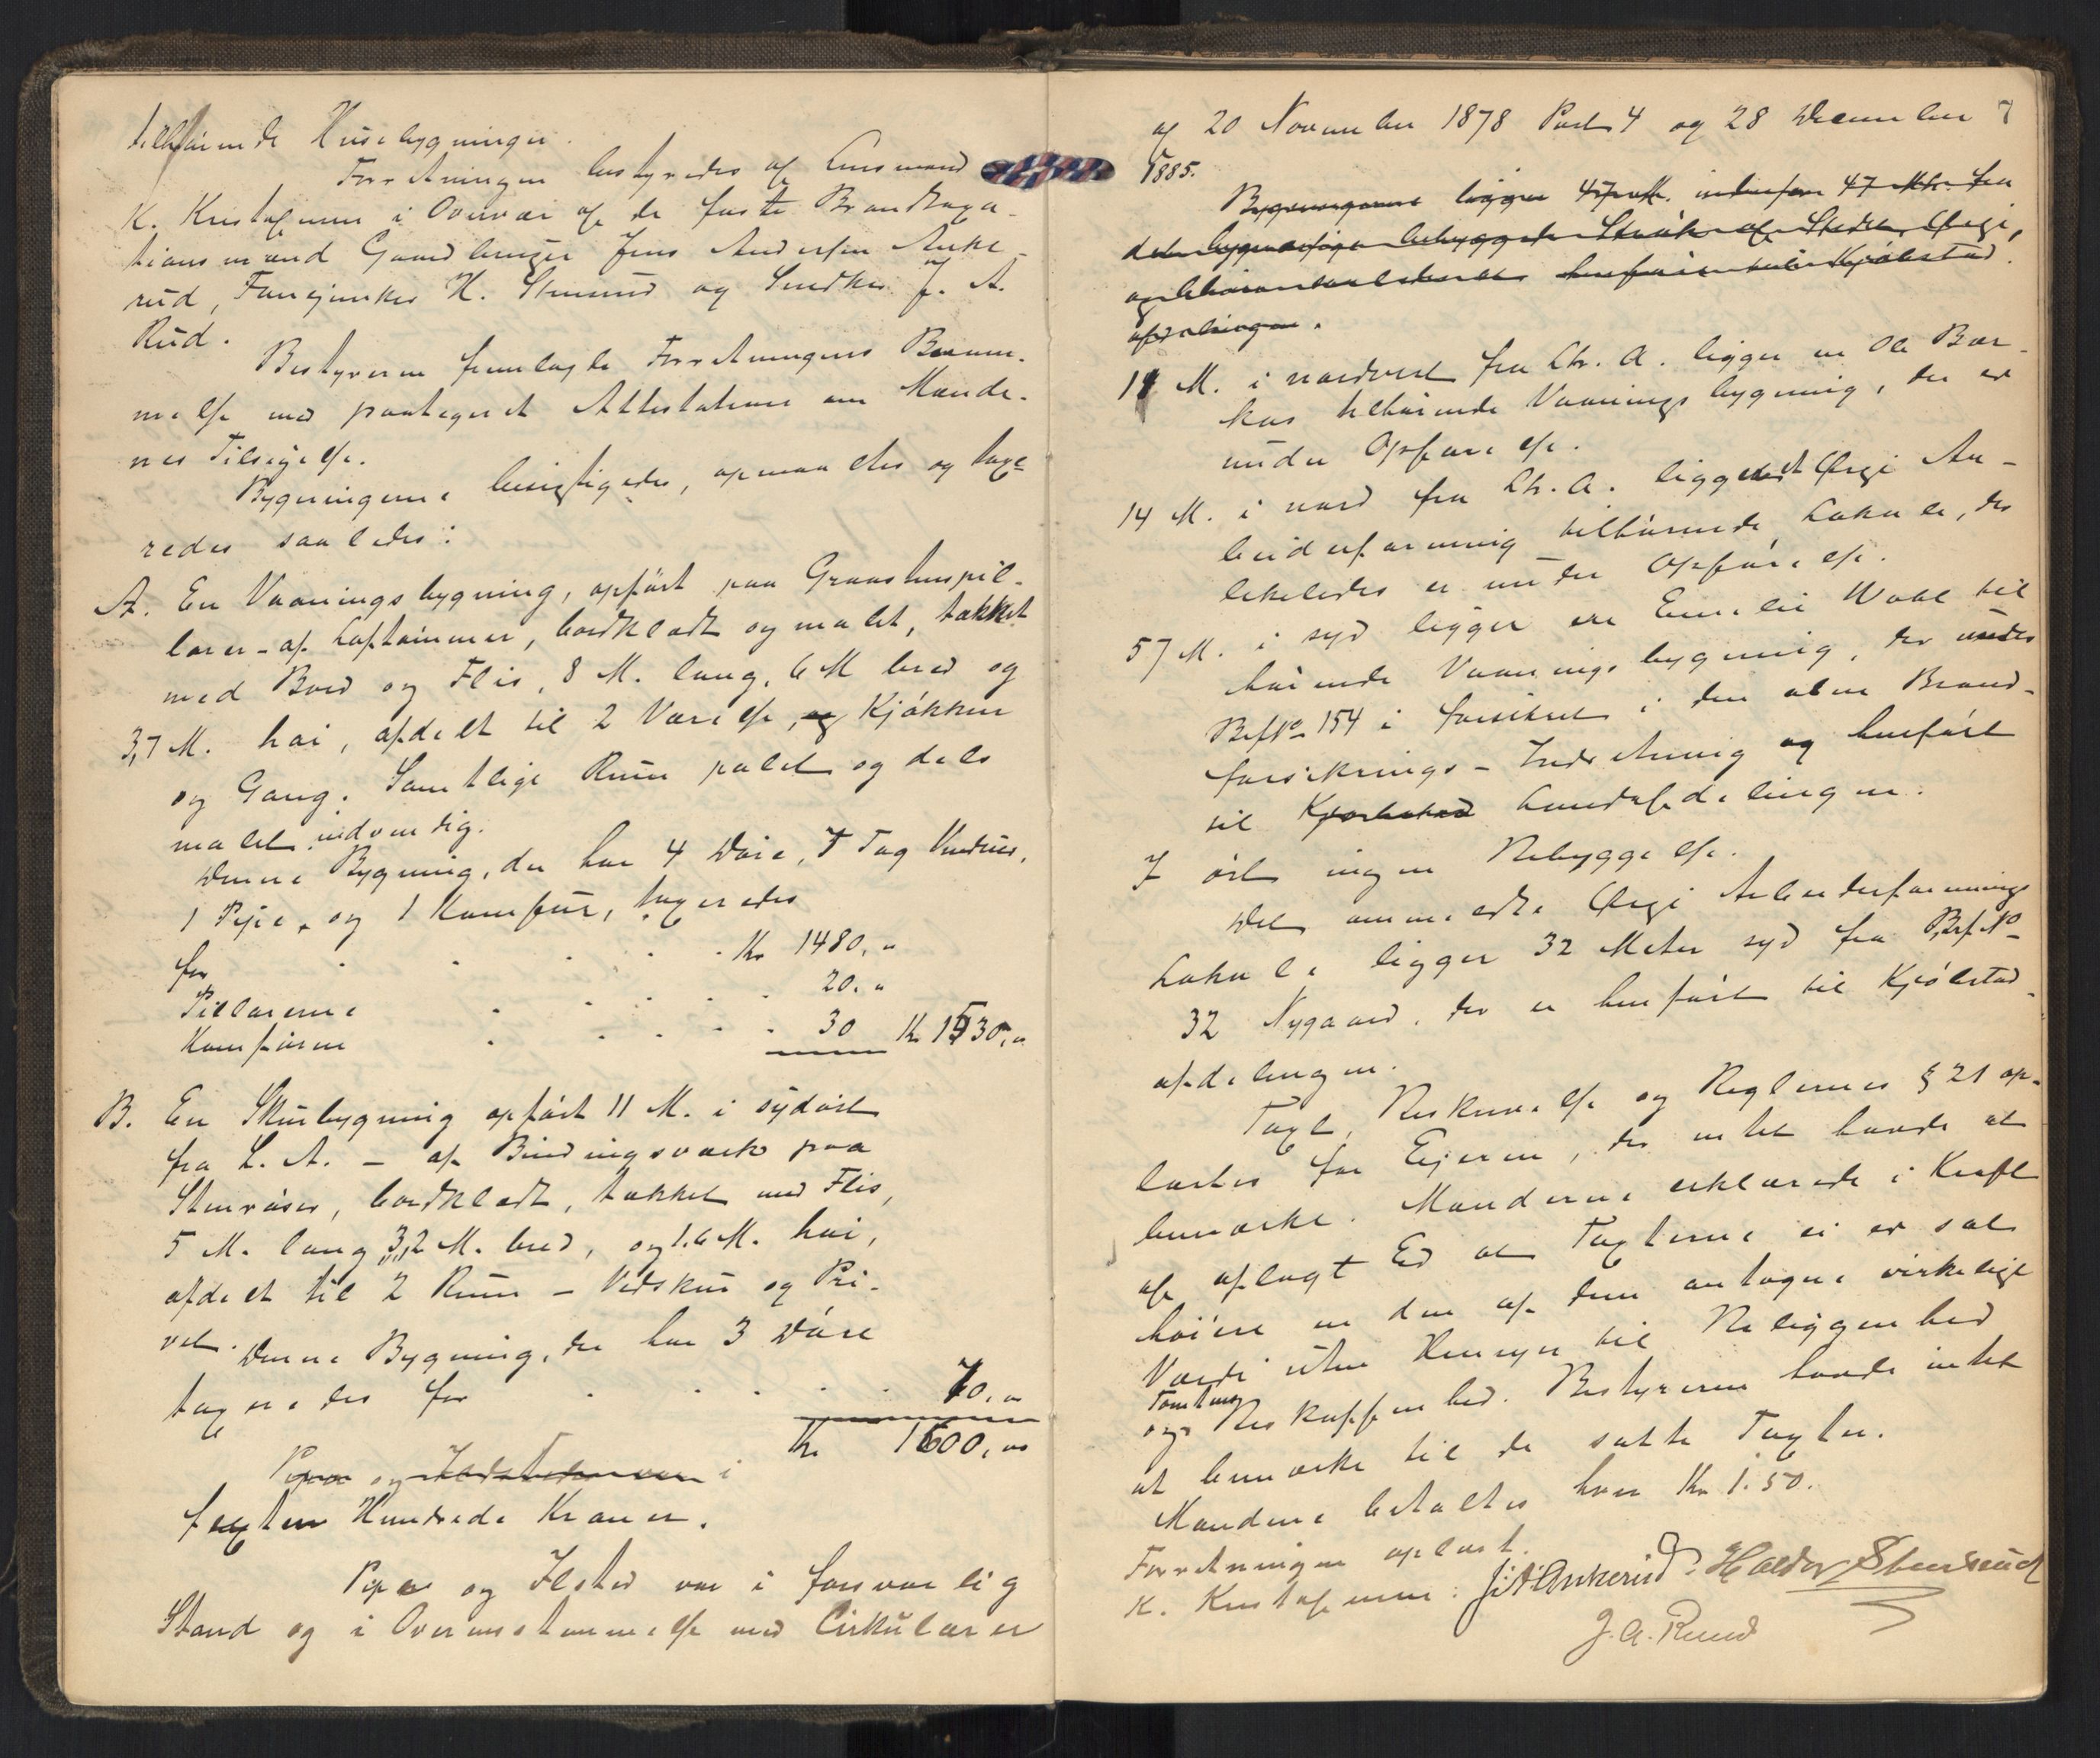 tilhørende Husebygninger.
Forretningen bestyredes af Lensmand
K. Kristofersen i Overvær af de faste Brandtaxa-
tionsmænd Gaardbruger Jens Andersen Anke-
rud, Fanejunker H. Stensrud og Snedker J. A.
Rud.
Bestyreren fremlagde Forretningens Beram-
melse med paategnet Attestation om Mænde-
nes Tilsigelse.
Bygningerne besigtigedes, opmaaltes og taxe-
redes saaledes:
A. En Vaaningsbygning, opført paa Graastenspil-
larer - af Laftømmer, bordklædt og malet, tækket
med Bord og Flis, 8 M. lang, 6 M bred og
3,7 M. høi, afdelt til 2 Værelse, og Kjøkken
og Gang. Samtlige Rum palet og dels
malet indvendig.
Denne Bygning, der har 4 Døre, 7 Fag Vinduer,
1 Pipe, og 1 Komfur, taxeredes
for . . . . . Kr 1480. "
Pillarerne . . . . . 20. "
Komføren . . . . . 30 Kr 1530. "
B. En Skurbygning opført 11 M. i sydøst
fra L. A. - af Bindingsværk paa
Stenrøser, bordklædt, tækket med Flis,
5 M. lang 3,2 M. bred, og 1.6 M. høi,
afdelt til 2 Rum - Vedskur og Pri-
vet. Denne Bygning, der har 3 Døre
taxeredes for . . . . . 70. "
Kr 1600. "
Piper og Ildstederne var i
sexten Hundrede Kroner.
Pipe og Ilsted var i forsvarlig
Stand og i Overensstemmelse med Cirkulærer
7
af 20 November 1878 Post 4 og 28 December
1885.
Bygningerne ligger 47 M. indenfor 47 Mtr. fra
den bygmæssige bebyggede Strøk af Stedet Ørje,
og henføres til Kjøbstad
afdelingen.
11 M. i nordvest fra Ltr. A. ligger en Ole Bær-
kas tilhørende Vaaningsbygning, der er
under Opførelse.
14 M. i nord fra Ltr. A. ligger et Ørje Ar-
beiderforening tilhørende Lokale, der
ligeledes er under Opførelse.
57 M. i syd ligger en Emelie Wold til
hørende Vaaningsbygning, der under
Bef No 154 i forsikret i den alm Brand-
forsikrings-Indretning og henført
til Kjøbstad Landafdelingen.
I øst ingen Bebyggelse.
Det anmeldte Ørje Arbeiderforenings
Lokale ligger 32 Meter syd fra Bef. No
32 Nygaard, der er henført til Kjøbstad-
afdelingen.
Taxt, Beskrivelse og Reglernes § 21 op-
læstes for Eieren, der intet havde at
bemærke. Mændene erklærede i Kraft
af aflagt Ed at Taxterne ei er sat
høiere en den af dem antagne virkelige
Værdi uten Hensyn til Beliggenhed
og Tomtens Beskaffenhed. Bestyreren havde intet
at bemærke til de satte Taxter.
Mændene betaltes hver Kr 1.50.
Forretningen oplæst.
K. Kristofersen. J. A Ankerud. Haldor Stensrud
J. A. Ruud